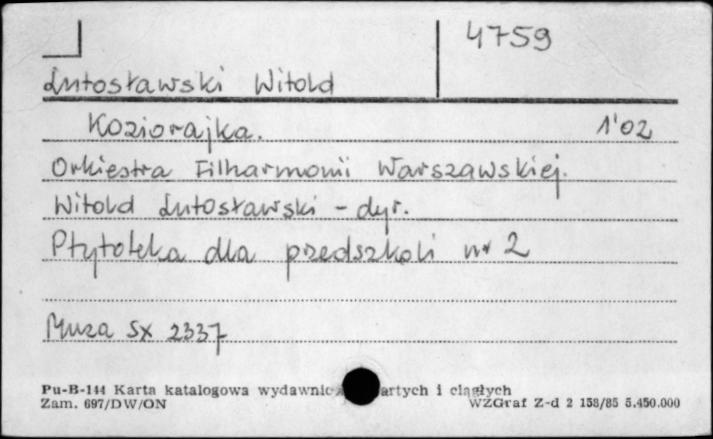 4759
Lutosławski Witold
Koziorajka. 1'02
Orkiestra Filharmonii Warszawskiej.
Witold Lutosławski - dyr.
Płytoteka dla przedszkoli nr 2
Muza SX 2337
Pu-B-144 Karta katalogowa wydawnic artych i ciągłych
Zam. 697/DW/ON WZGraf Z-d 2 158/85 5.450.000